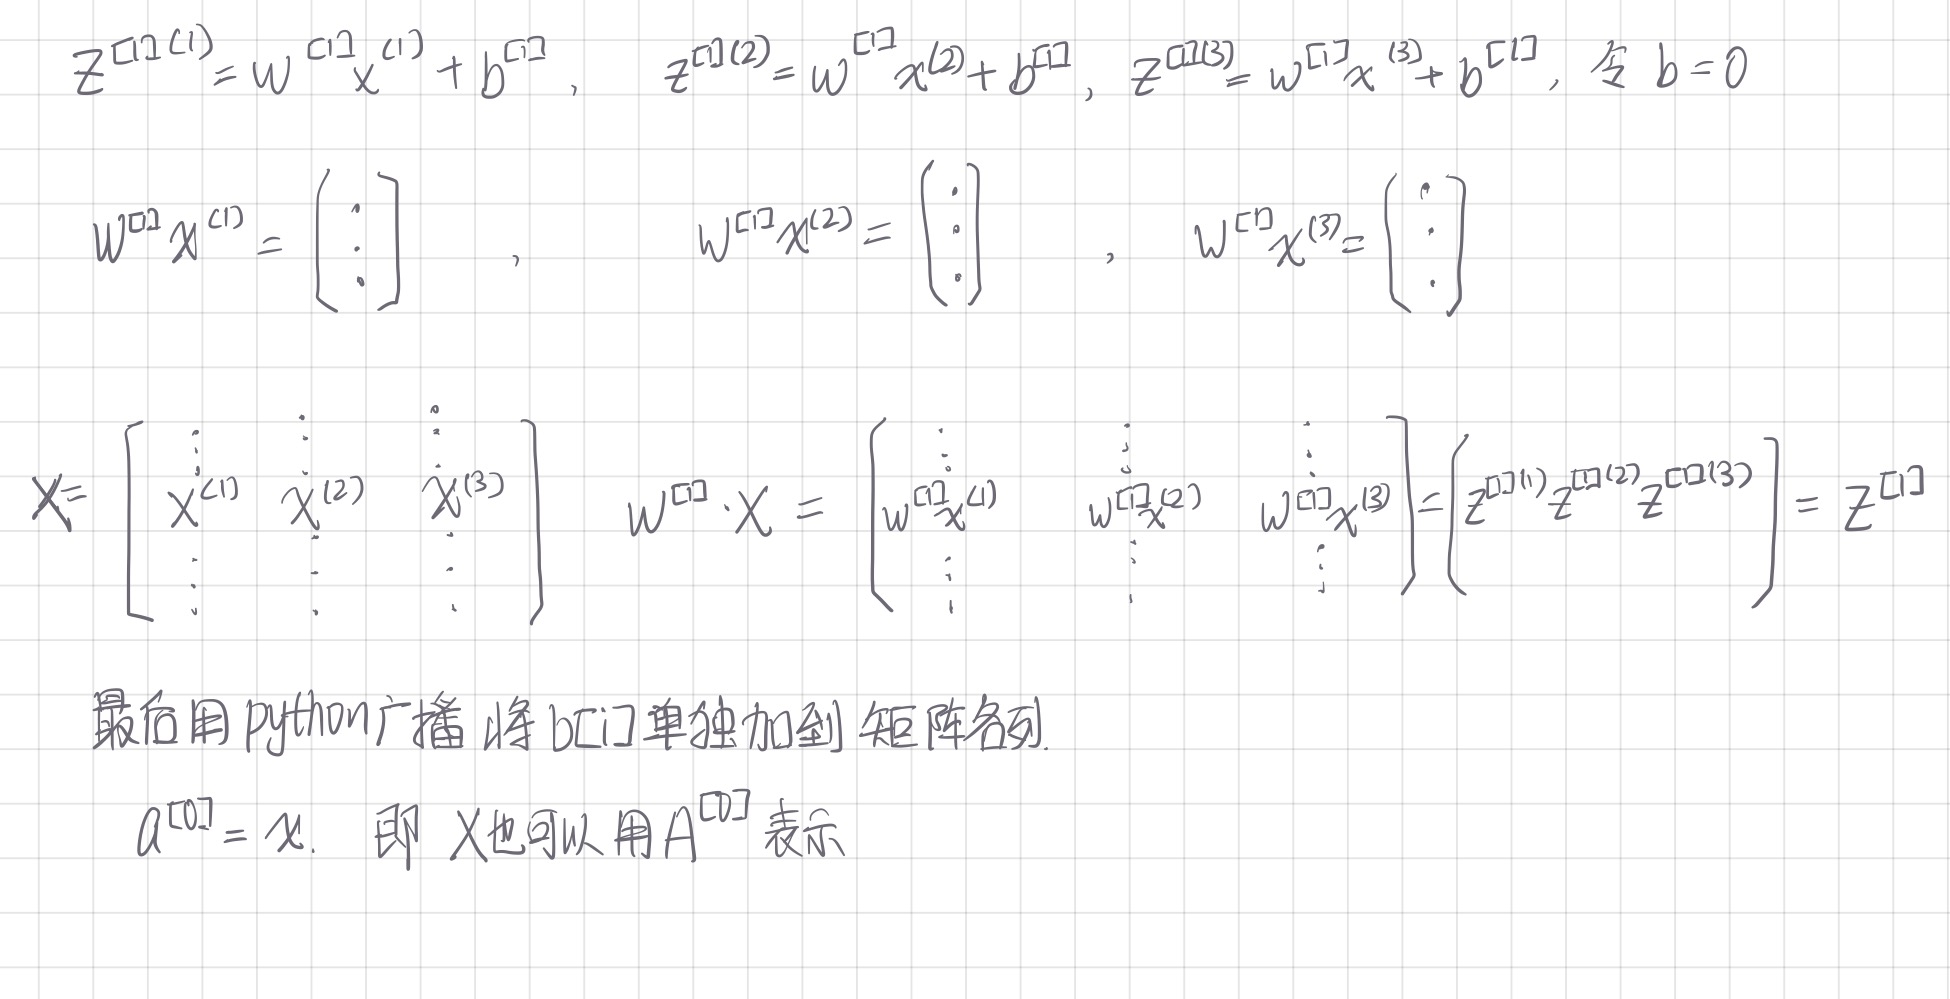 z^{[1](1)} = w^{[1]}x^{(1)} + b^{[1]}, z^{[1](2)} = w^{[1]}x^{(2)} + b^{[1]}, z^{[1](3)} = w^{[1]}x^{(3)} + b^{[1]}, 令 b = 0
w^{[1]}x^{(1)} = [⋮], w^{[1]}x^{(2)} = [⋮], w^{[1]}x^{(3)} = [⋮]
X = [x^{(1)} x^{(2)} x^{(3)}] w^{[1]}·X = [w^{[1]}x^{(1)} w^{[1]}x^{(2)} w^{[1]}x^{(3)}] = [z^{[1](1)} z^{[1](2)} z^{[1](3)}] = Z^{[1]}
最后用python广播将b[i]单独加到矩阵各列.
a^{[0]} = x. 即 X也可以用A^{[0]}表示